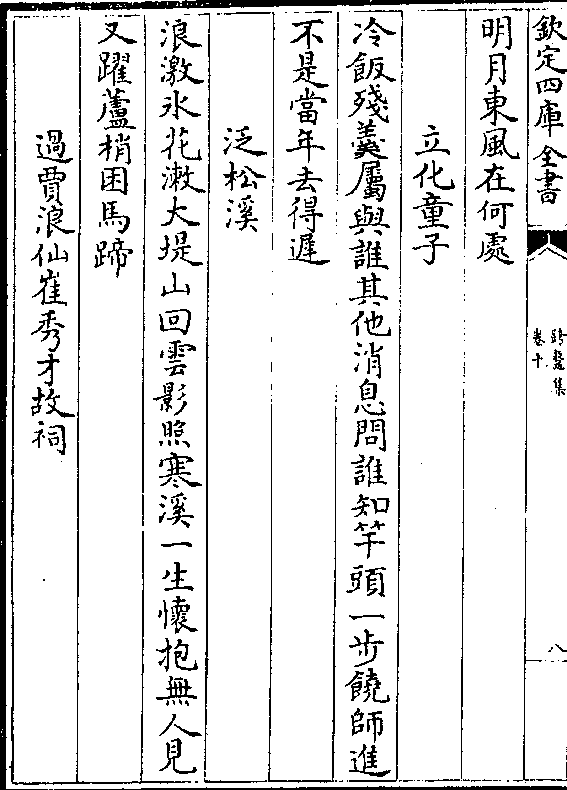 欽定四庫全書
跨鼇集
卷十
八
明月東風在何處
立化童子
冷飯殘羹屬與誰其他消息問誰知竿頭一步饒師進
不是當年去得遲
泛松溪
浪激氷花漱大堤山回雲影照寒溪一生懷抱無人見
又躍蘆梢困馬蹄
過賈浪仙崔秀才故祠